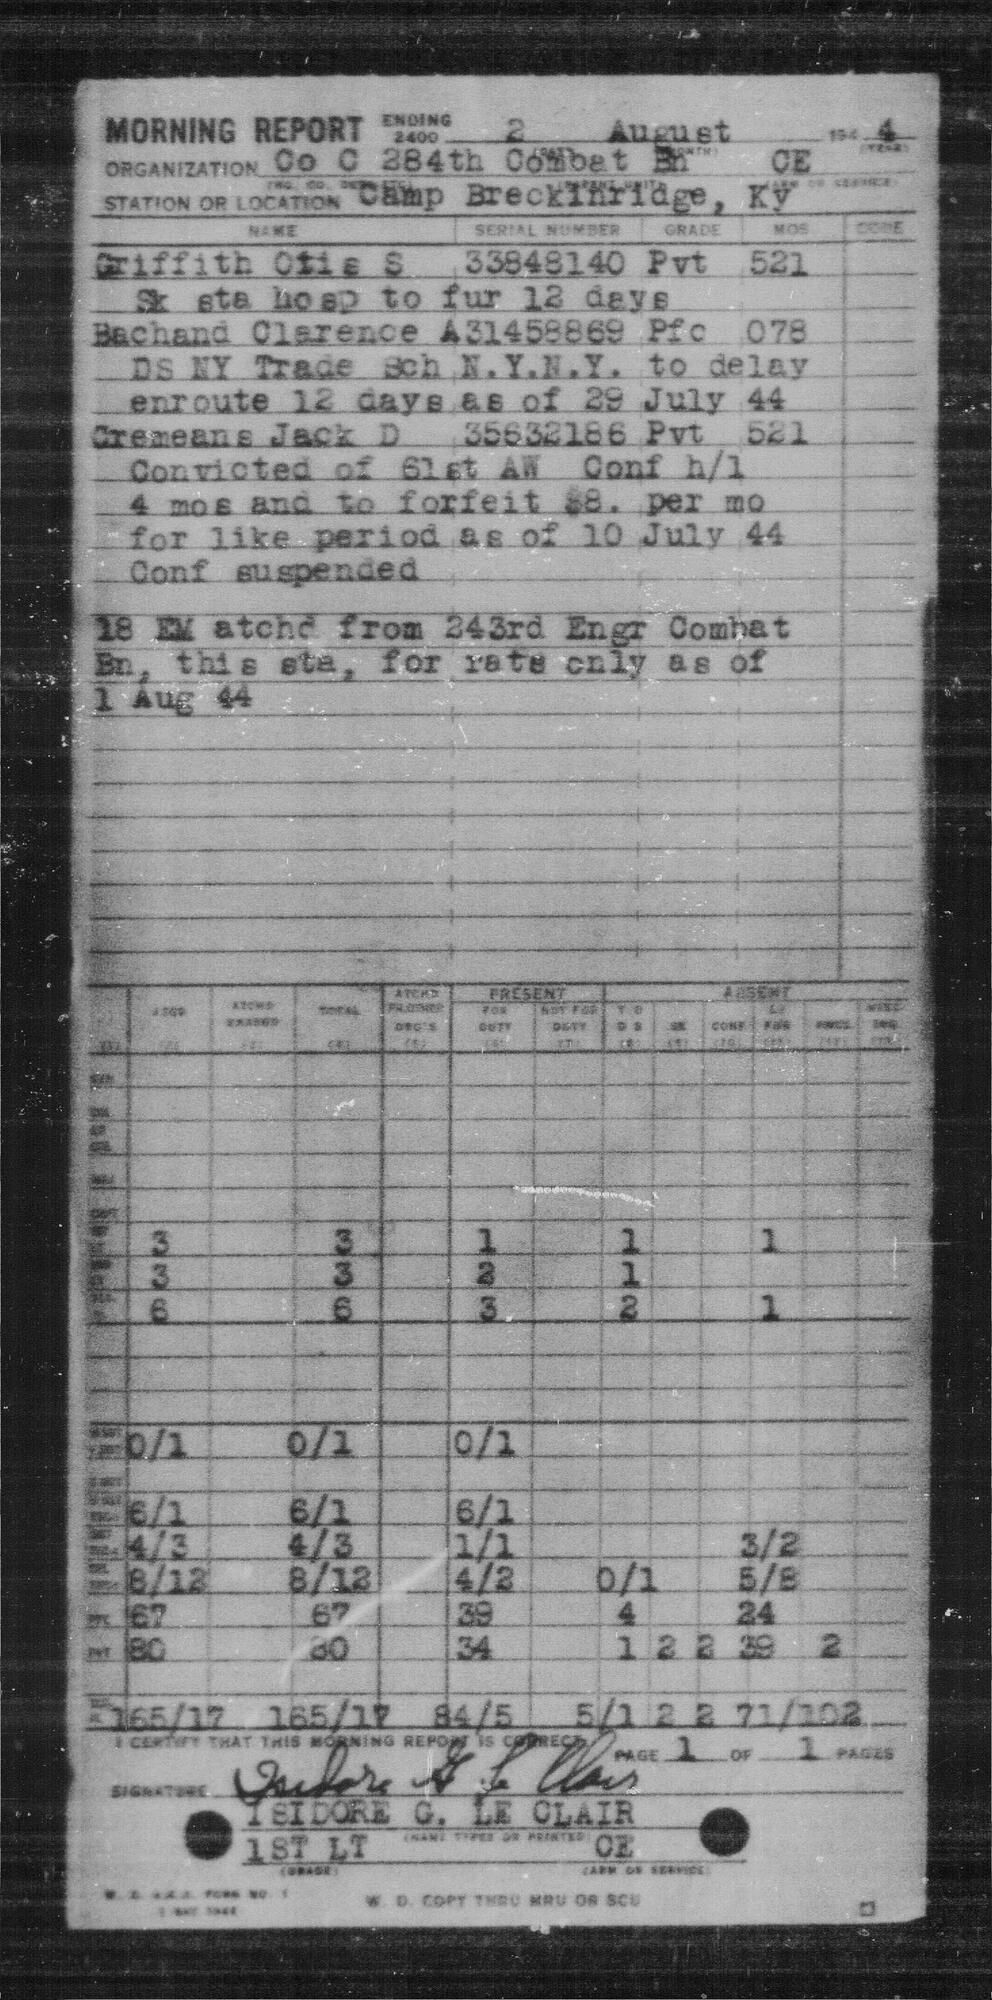 MORNING REPORT ENDING 2400 2 August 194 4
(DATE) (MONTH) (YEAR)
ORGANIZATION Co C 284th Combat Bn CE
STATION OR LOCATION Camp Breckinridge, Ky
NAME SERIAL NUMBER GRADE MOS CODE
Griffith Otis S 33848140 Pvt 521
Sk sta hosp to fur 12 days
Bachand Clarence A 31458869 Pfc 078
DS NY Trade Sch N.Y.N.Y. to delay
enroute 12 days as of 29 July 44
Cremeans Jack D 35632186 Pvt 521
Convicted of 61st AW Conf h/l
4 mos and to forfeit $8. per mo
for like period as of 10 July 44
Conf suspended
18 EM atchd from 243rd Engr Combat
Bn, this sta, for rats only as of
1 Aug 44
PRESENT ABSENT
ASGD ATCHD TOTAL ATCHD FOR DUTY NOT FOR DUTY SK CONF
3 3 1 1 1
3 3 2 1
6 6 3 2 1
0/1 0/1 0/1
6/1 6/1 6/1
4/3 4/3 1/1 3/2
8/12 8/12 4/2 0/1 5/8
PFC 67 67 39 4 24
PVT 80 80 34 1 2 2 39 2
165/17 165/17 84/5 5/1 2 2 71/102
I CERTIFY THAT THIS MORNING REPORT IS CORRECT
PAGE 1 OF 1 PAGES
SIGNATURE Isidore G Le Clair
ISIDORE G. LE CLAIR
(NAME TYPED OR PRINTED)
1ST LT CE
(GRADE) (ARM OR SERVICE)
W. D. A.G.O. FORM NO. 1
W. D. COPY THRU MRU OR SCU